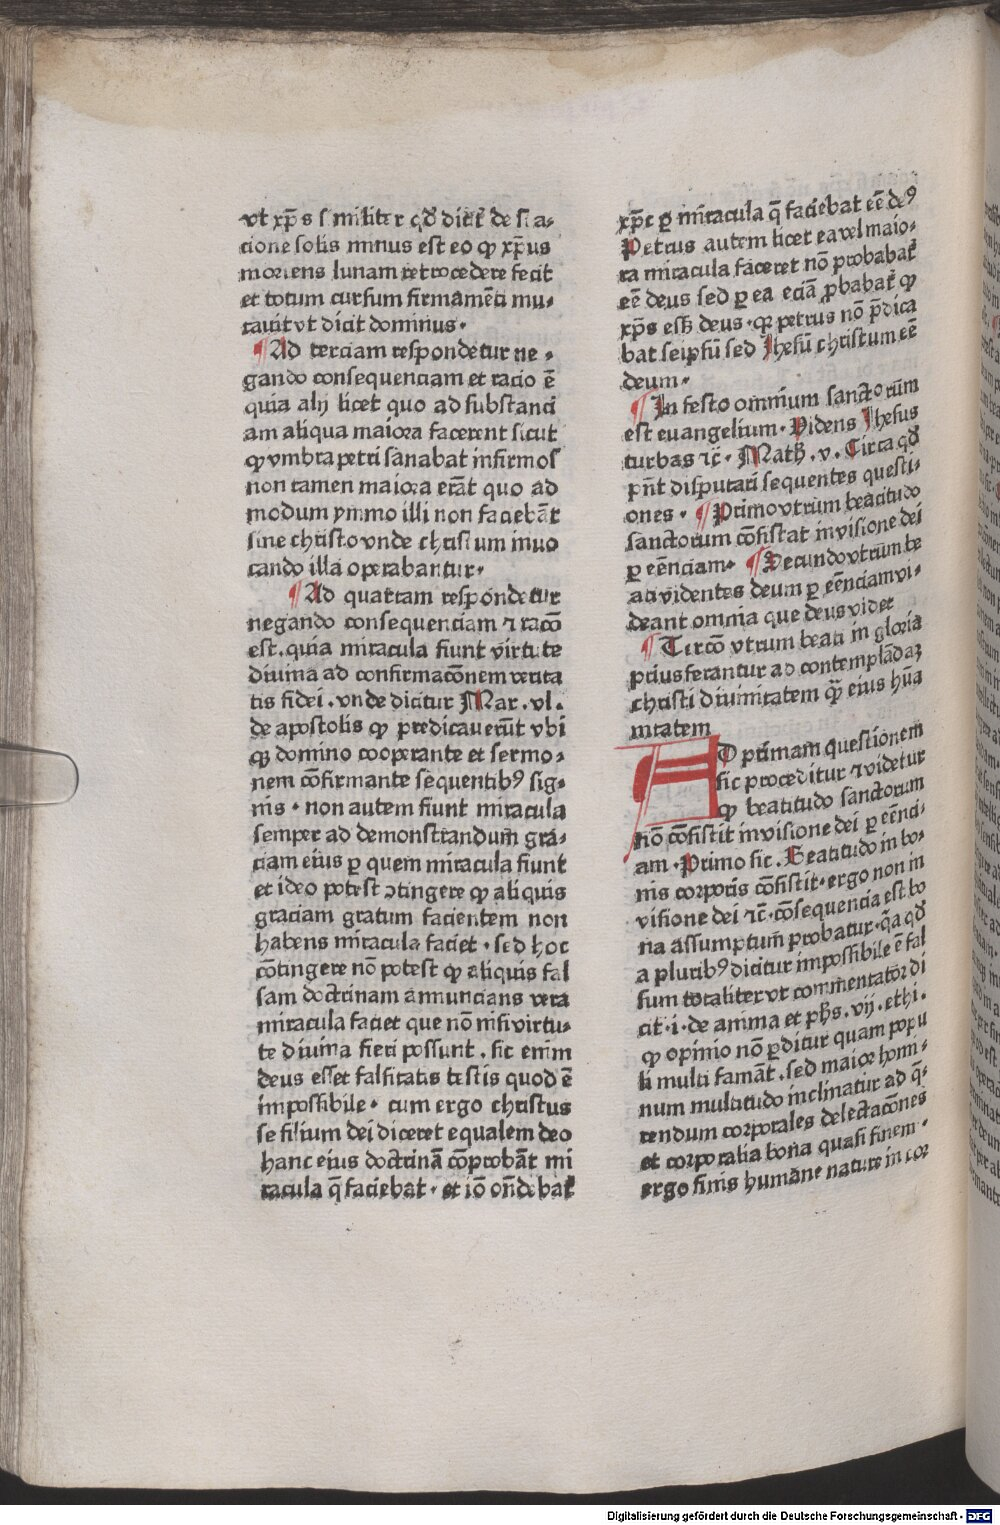 vt xp̄s similiter qď dicit̄ de sta⸗
cione solis minus est eo ꝙ xp̄us
moriens lunam retrocedere fecit
et totum cursum firmamēti mu⸗
tauit vt dicit dominus.
¶Ad terciam respondetur ne⸗
gando consequenciam et racio ē
quia alij licet quo ad substanci
am aliqua maiora facerent sicut
ꝙ vmbra petri sanabat infirmos
non tamen maiora erāt quo ad
modum ymmo illi non faciebāt
sine christo vnde christum inuo
cando illa operabantur.
¶Ad quartam respondetur
negando consequenciam ⁊ racō
est. quia miracula fiunt virtute
diuina ad confirmacōnem verita
tis fidei. vnde dicitur Mar. vl.
de apostolis ꝙ predicauerūt vbi
ꝙ domino cooperante et sermo⸗
nem cōfirmante sequentibꝰ sig⸗
nis. non autem fiunt miracula
semper ad demonstrandum gra⸗
ciam eius ꝑ quem miracula fiunt
et ideo potest ꝯtingere ꝙ aliquis
graciam gratum facientem non
habens miracula faciet. sed hoc
cōtingere nō potest ꝙ aliquis fal
sam doctrinam annuncians vera
miracula faciet que nō nisi virtu⸗
te diuina fieri possunt. sic enim
deus esset falsitatis testis quod ē
impossibile. cum ergo christus
se filium dei diceret equalem deo
hanc eius doctrinā cōprobāt mi
racula q̄ faciebat. et iō on̄debat
xp̄c ꝑ miracula q̄ faciebat eē deꝰ
Petrus autem licet ea vel maio⸗
ra miracula faceret nō probabat̄
eē deus sed ꝑ ea eciā ꝓbabat̄ ꝙ
xp̄s esset deus. qꝛ petrus nō p̄dica
bat seipsū sed Jhesū christum eē
deum.
¶In festo omnium sanctorum
est euangelium. Videns Jhesus
turbas ⁊c̄. Math. v. Circa qď
pn̄t disputari sequentes questi⸗
ones. ¶Primo vtrum beatitudo
sanctorum cōsistat in visione dei
ꝑ eēnciam. ¶Secundo vtrum be
ati videntes deum ꝑ eēnciam vi⸗
deant omnia que deus videt
¶Tercō vtrum beati in gloria
prius ferantur ad contemplādaꝫ
christi diuinitatem q̄ȝ eius hūa
nitatem
AD primam questionem
sic proceditur ⁊ videtur
ꝙ beatitudo sanctorum
nō cōsistit in visione dei ꝑ eēnci⸗
am. Primo sic. Beatitudo in bo⸗
nis corporis cōsistit. ergo non in
visione dei ⁊c̄. cōsequencia est bo
na assumptum probatur. q̄a qď
a pluribꝰ dicitur impossibile ē fal
sum totaliter vt commentator di
cit. i. de anima et ph̄s. vij. ethi.
ꝙ opinio nō ꝑditur quam popu
li multi famāt. sed maior homi⸗
num multitudo inclinatur ad q̄⸗
rendum corporales delectacōnes
et corporalia bona quasi finem.
ergo finis humane nature in cor
Digitalisierung gefördert durch die Deutsche Forschungsgemeinschaft - DFG